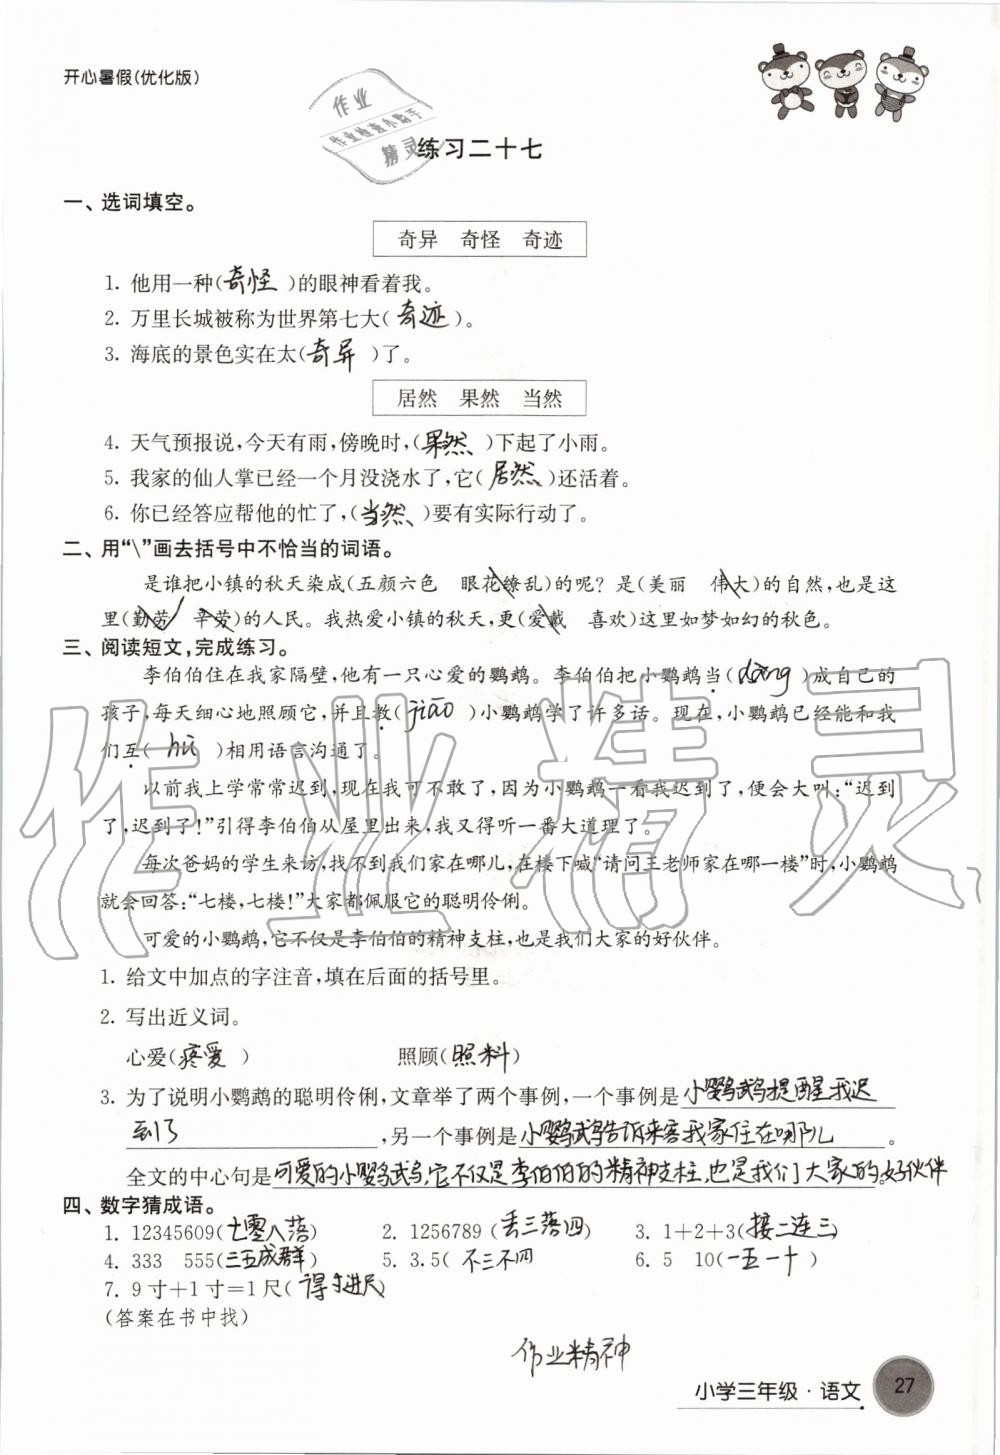 开心暑假(优化版)
作业
作业检查小助手
精灵
练习二十七
一、选词填空。
奇异 奇怪 奇迹
1. 他用一种(奇怪)的眼神看着我。
2. 万里长城被称为世界第七大(奇迹)。
3. 海底的景色实在太(奇异)了。
居然 果然 当然
4. 天气预报说,今天有雨,傍晚时,(果然)下起了小雨。
5. 我家的仙人掌已经一个月没浇水了,它(居然)还活着。
6. 你已经答应帮他的忙了,(当然)要有实际行动了。
二、用“\”画去括号中不恰当的词语。
是谁把小镇的秋天染成(五颜六色 眼花缭乱)的呢？是(美丽 伟大)的自然,也是这
里(勤劳 辛劳)的人民。我热爱小镇的秋天,更(爱戴 喜欢)这里如梦如幻的秋色。
三、阅读短文,完成练习。
李伯伯住在我家隔壁,他有一只心爱的鹦鹉。李伯伯把小鹦鹉当(dàng)成自己的
孩子,每天细心地照顾它,并且教(jiāo)小鹦鹉学了许多话。现在,小鹦鹉已经能和我
们互(hù)相用语言沟通了。
以前我上学常常迟到,现在我可不敢了,因为小鹦鹉一看我迟到了,便会大叫:“迟到
了,迟到了!”引得李伯伯从屋里出来,我又得听一番大道理了。
每次爸妈的学生来访,找不到我们家在哪儿,在楼下喊“请问王老师家在哪一楼”时,小鹦鹉
就会回答:“七楼,七楼!”大家都佩服它的聪明伶俐。
可爱的小鹦鹉,它不仅是李伯伯的精神支柱,也是我们大家的好伙伴。
1. 给文中加点的字注音,填在后面的括号里。
2. 写出近义词。
心爱(疼爱) 照顾(照料)
3. 为了说明小鹦鹉的聪明伶俐,文章举了两个事例,一个事例是小鹦鹉提醒我迟
到了,另一个事例是小鹦鹉告诉来客我家住在哪儿。
全文的中心句是可爱的小鹦鹉,它不仅是李伯伯的精神支柱,也是我们大家的好伙伴。
四、数字猜成语。
1. 12345609(七零八落) 2. 1256789(丢三落四) 3. 1+2+3(接二连三)
4. 333 555(三五成群) 5. 3.5(不三不四) 6. 5 10(一五一十)
7. 9寸+1寸=1尺(得寸进尺)
(答案在书中找)
作业精神
小学三年级·语文 27
作业精灵